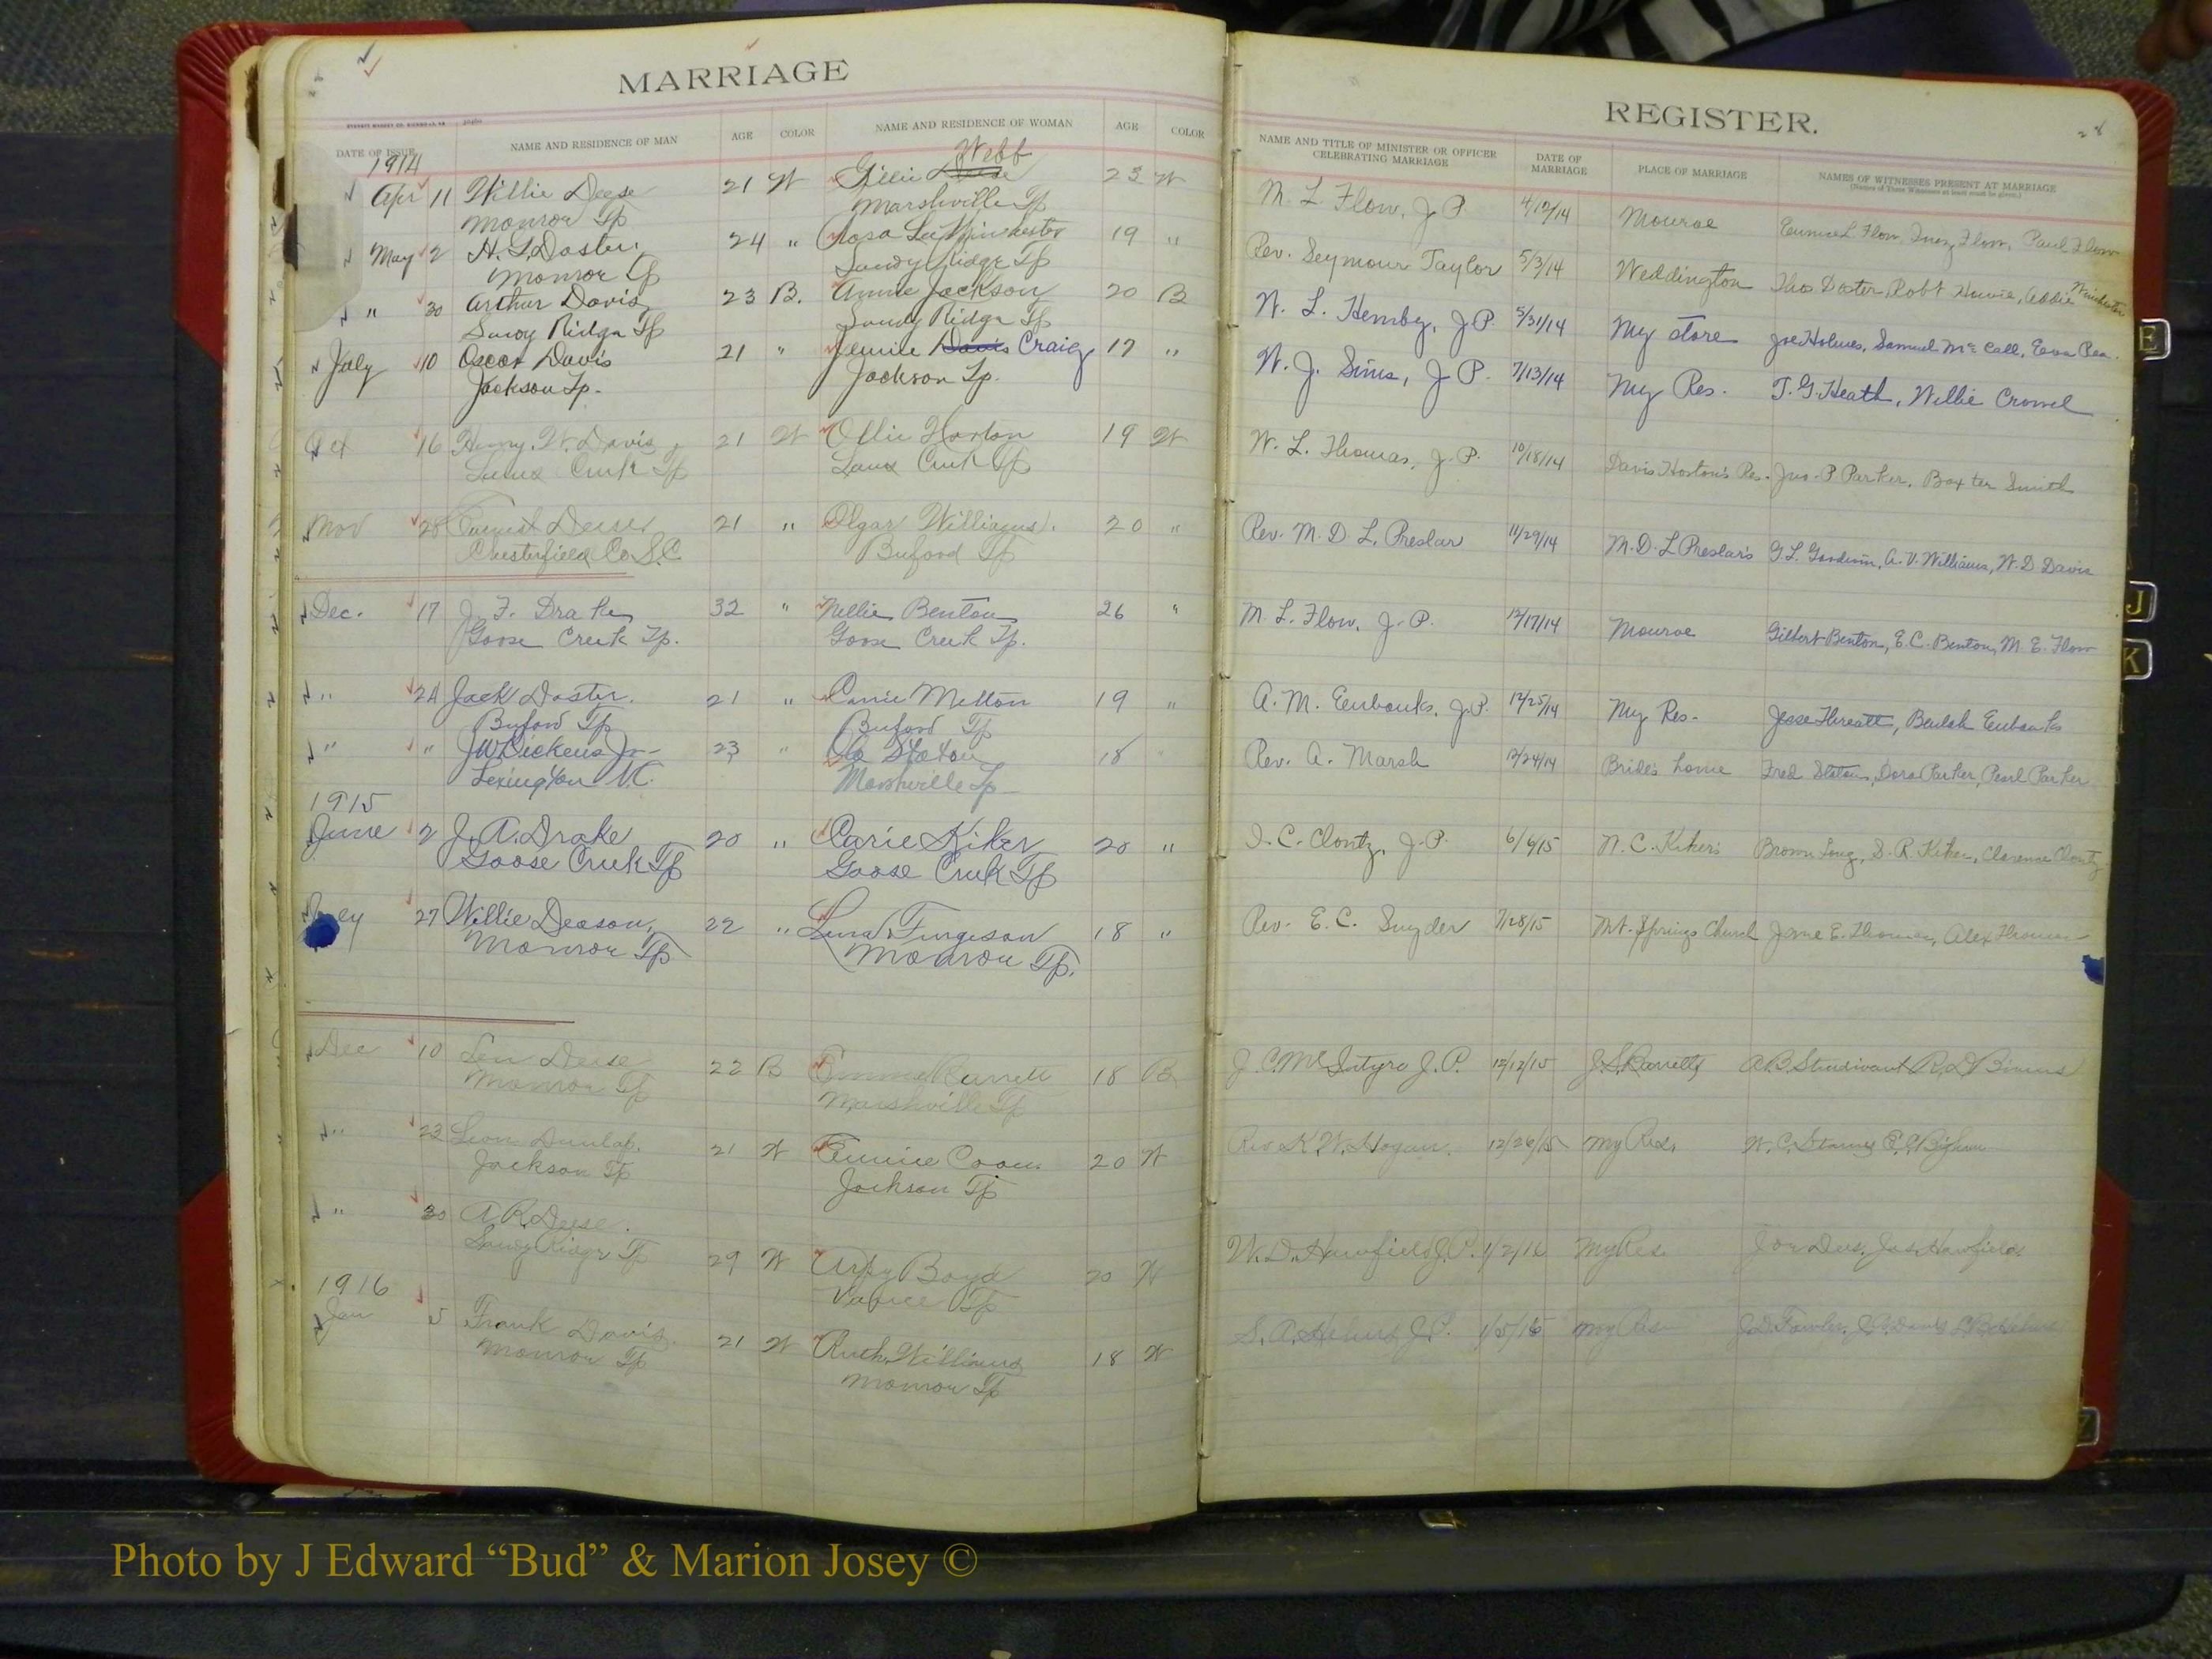 MARRIAGE
DATE OF ISSUE NAME AND RESIDENCE OF MAN AGE COLOR NAME AND RESIDENCE OF WOMAN AGE COLOR
1914 Webb
Apr 11 Willie Deese 21 W Gillie Deese 23 W
Monroe Tp Marshville Tp
May 2 H. L. Doster, 24 " Rosa Lee Winchester 19 "
Monroe Tp Sandy Ridge Tp
" 30 Arthur Davis 23 B. Annie Jackson 20 B
Sandy Ridge Tp Sandy Ridge Tp
July 10 Oscar Davis 21 " Jennie Davis Craig 17 "
Jackson Tp. Jackson Tp.
Oct 16 Henry W. Davis 21 W Ollie Horton 19 W
Lanes Creek Tp Lanes Creek Tp
Nov 28 21 " Olgar Williams. 20 "
Chesterfield Co S.C. Buford Tp
Dec. 17 J. F. Drake 32 " Nellie Benton 26 "
Goose Creek Tp. Goose Creek Tp.
" 24 Jack Doster. 21 " Carrie Melton 19 "
Buford Tp Buford Tp
" " J W Dickens Jr 23 " Ola Staton 18 "
Lexington N.C. Marshville Tp
1915
June 2 J. A. Drake 20 " Carie Kiker 20 "
Goose Creek Tp Goose Creek Tp
27 Willie Deason, 22 " Lena Furgeson 18 "
Monroe Tp Monroe Tp.
Dec 10 Len Deese 22 B Emma Barrett 18 B
Monroe Tp Marshville Tp
" 23 Leon Dunlap. 21 W Eunice 20 W
Jackson Tp Jackson Tp
" 30 A. R. Deese.
Sandy Ridge Tp 29 W Boyd 20 W
1916 Vance Tp
Jan 5 Frank Davis. 21 W Ruth Williams 18 W
Monroe Tp Monroe Tp
REGISTER.
NAME AND TITLE OF MINISTER OR OFFICER CELEBRATING MARRIAGE DATE OF MARRIAGE PLACE OF MARRIAGE NAMES OF WITNESSES PRESENT AT MARRIAGE
(Names of Three Witnesses at least must be given.)
M. L. Flow, J P 4/12/14 Monroe Eunice L Flow, Inez Flow, Paul Flow
Rev. Seymour Taylor 5/3/14 Weddington Thos Doster, Robt Howie, Addie Winchester
W. L. Hemby, J P. 5/31/14 My store Joe Holmes, Samuel McCall, Eva Rea.
W. J. Sims, J P. 7/13/14 My Res. T. G. Heath, Willie Crowel
W. L. Thomas, J. P. 10/18/14 Davis Horton's Res. Jno. P Parker, Baxter Smith
Rev. M. D. L. Preslar 11/29/14 M. D. L Preslar's G. L. Goodwin, A. V. Williams, W. D Davis
M. L. Flow, J. P. 12/17/14 Monroe Gilbert Benton, E. C. Benton, M. E. Flow
A. M. Eubanks, J.P. 12/25/14 My Res. Jesse Threatt, Beulah Eubanks
Rev. A. Marsh 12/24/14 Bride's home Fred Staton, Dora Parker, Pearl Parker
I. C. Clontz, J. P. 6/6/15 N. C. Kiker's Brown Long, S. R. Kiker, Clarence Clontz
Rev. E. C. Snyder 7/28/15 Mt. Springs Church Jane E. Thomas, Alex Thomas
J. C. McIntyre J. P. 12/12/15 J. S. Barretts A. B. Sturdivant R. D. Bivens
Rev K. W. Hogan. 12/26/15 My Res. W. C. Starnes
W. D. Hawfield J. P. 1/2/16 My Res. Jas. Hawfield
S. A. Helms, J. P. 1/5/16 My Res J. D. Fowler,
Photo by J Edward “Bud” & Marion Josey ©
E
J
K